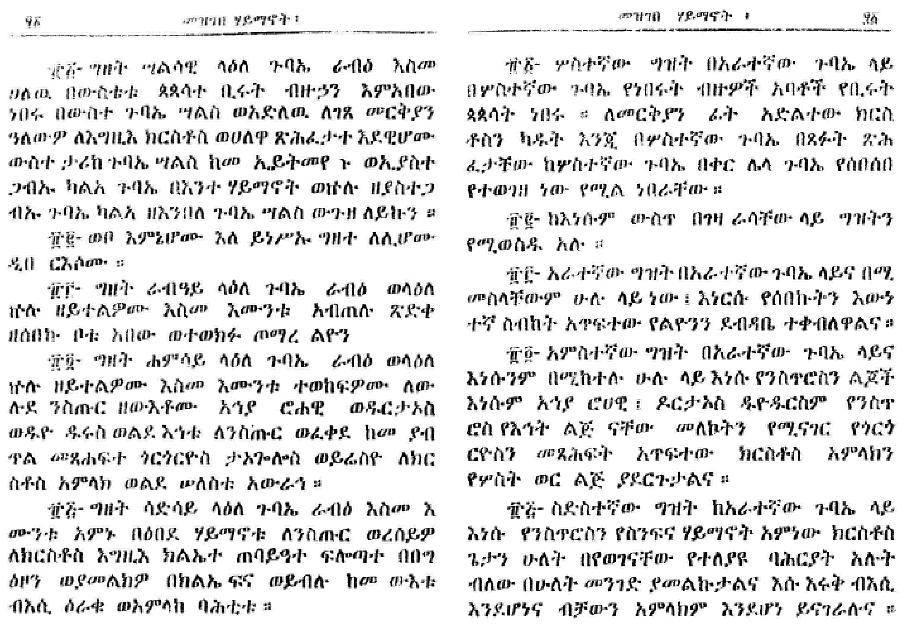 ፶፩ መዝገበ ሃይማኖት ፡
ግዘት ሣልሳዊ ላዕለ ጉባኤ ራብዕ እስመ
ሀለዉ በውስቴቱ ጳጳሳተ ቢሩት ብዙኃን እምአበው
ነበሩ በውስተ ጉባኤ ሣልስ ወአድለዉ ለገጸ መርቅያን
ዓለውዎ ለእግዚእ ክርስቶስ ወሀለዋ ጽሕፈታተ እደዊሆሙ
ውስተ ታሪከ ጉባኤ ሣልስ ከመ ኢይትመየጡ ወኢያስተ
ጋብኡ ካልአ ጉባኤ በእንተ ሃይማኖት ወኵሉ ዘያስተጋ
ብኡ ጉባኤ ካልአ ዘእንበለ ጉባኤ ሣልስ ውጉዘ ለይኩን ።
ወቦ እምኔሆሙ እለ ይነሥኡ ግዘተ ለሊሆሙ
ዲበ ርእሶሙ ።
ግዘት ራብዓይ ላዕለ ጉባኤ ራብዕ ወላዕለ
ኵሉ ዘይተልዎሙ እስመ እሙንቱ አብጠሉ ጽድቀ
ዘሰበኩ ቦቱ አበው ወተወክፉ ጦማረ ልዮን
ግዘት ሐምሳይ ላዕለ ጉባኤ ራብዕ ወላዕለ
ኵሉ ዘይተልዎሙ እስመ እሙንቱ ተወከፍዎሙ ለው
ሉደ ንስጡር ዘውእቶሙ አኅያ ሮሐዊ ወዱርታኦስ
ወዱዮ ዱሩስ ወልደ እኅቱ ለንስጡር ወፈቀደ ከመ ያብ
ጥል መጻሕፍተ ጎርጎርዮስ ታኦጎሎስ ወይሬስዮ ለክር
ስቶስ አምላክ ወልደ ሠለስቱ አውራኅ ።
ግዘት ሳድሳይ ላዕለ ጉባኤ ራብዕ እስመ እ
ሙንቱ አምኑ በዕበደ ሃይማኖቱ ለንስጡር ወረሰይዎ
ለክርስቶስ እግዚእ ክልኤተ ጠባይዓተ ፍሎጣተ በበግ
ዕዞን ወያመልክዎ በክልኤ ፍና ወይብሉ ከመ ውእቱ
ብእሲ ዕራቁ ወአምላክ ባሕቲቱ ።
መዝገበ ሃይማኖት ፡ ፶፩
ሦስተኛው ግዝት በአራተኛው ጉባኤ ላይ
በሦስተኛው ጉባኤ የነበሩት ብዙዎች አባቶች የቢሩት
ጳጳሳት ነበሩ ። ለመርቅያን ፊት አድልተው ክርስ
ቶስን ካዱት እንጂ በሦስተኛው ጉባኤ በጸፉት ጽሕ
ፈታቸው ከሦስተኛው ጉባኤ በቀር ሌላ ጉባኤ የሰበሰበ
የተወገዘ ነው የሚል ነበራቸው ።
ከእነሱም ውስጥ በገዛ ራሳቸው ላይ ግዝትን
የሚወስዱ አሉ ።
አራተኛው ግዝት በአራተኛው ጉባኤ ላይና በሚ
መስላቸውም ሁሉ ላይ ነው ፤ እነርሱ የሰበኩትን እውነ
ተኛ ስብከት አጥፍተው የልዮንን ደብዳቤ ተቀብለዋልና ።
አምስተኛው ግዝት በአራተኛው ጉባኤ ላይና
እነሱንም በሚከተሉ ሁሉ ላይ እነሱ የንስጥሮስን ልጆች
እነሱም አኅያ ሮሀዊ ፤ ዶርታኦስ ዱዮዱርስም የንስጥ
ሮስ የእኅት ልጅ ናቸው መለኮትን የሚናገር የጎርጎ
ርዮስን መጻሕፍት አጥፍተው ክርስቶስ አምላክን
የሦስት ወር ልጅ ያደርጉታልና ።
ስድስተኛው ግዝት ከአራተኛው ጉባኤ ላይ
እነሱ የንስጥሮስን የስንፍና ሃይማኖት አምነው ክርስቶስ
ጌታን ሁለት በየወገናቸው የተለያዩ ባሕርያት አሉት
ብለው በሁለት መንገድ ያመልኩታልና እሱ እሩቅ ብእሲ
እንደሆነና ብቻውን አምላክም እንደሆነ ይናገራሉና ።